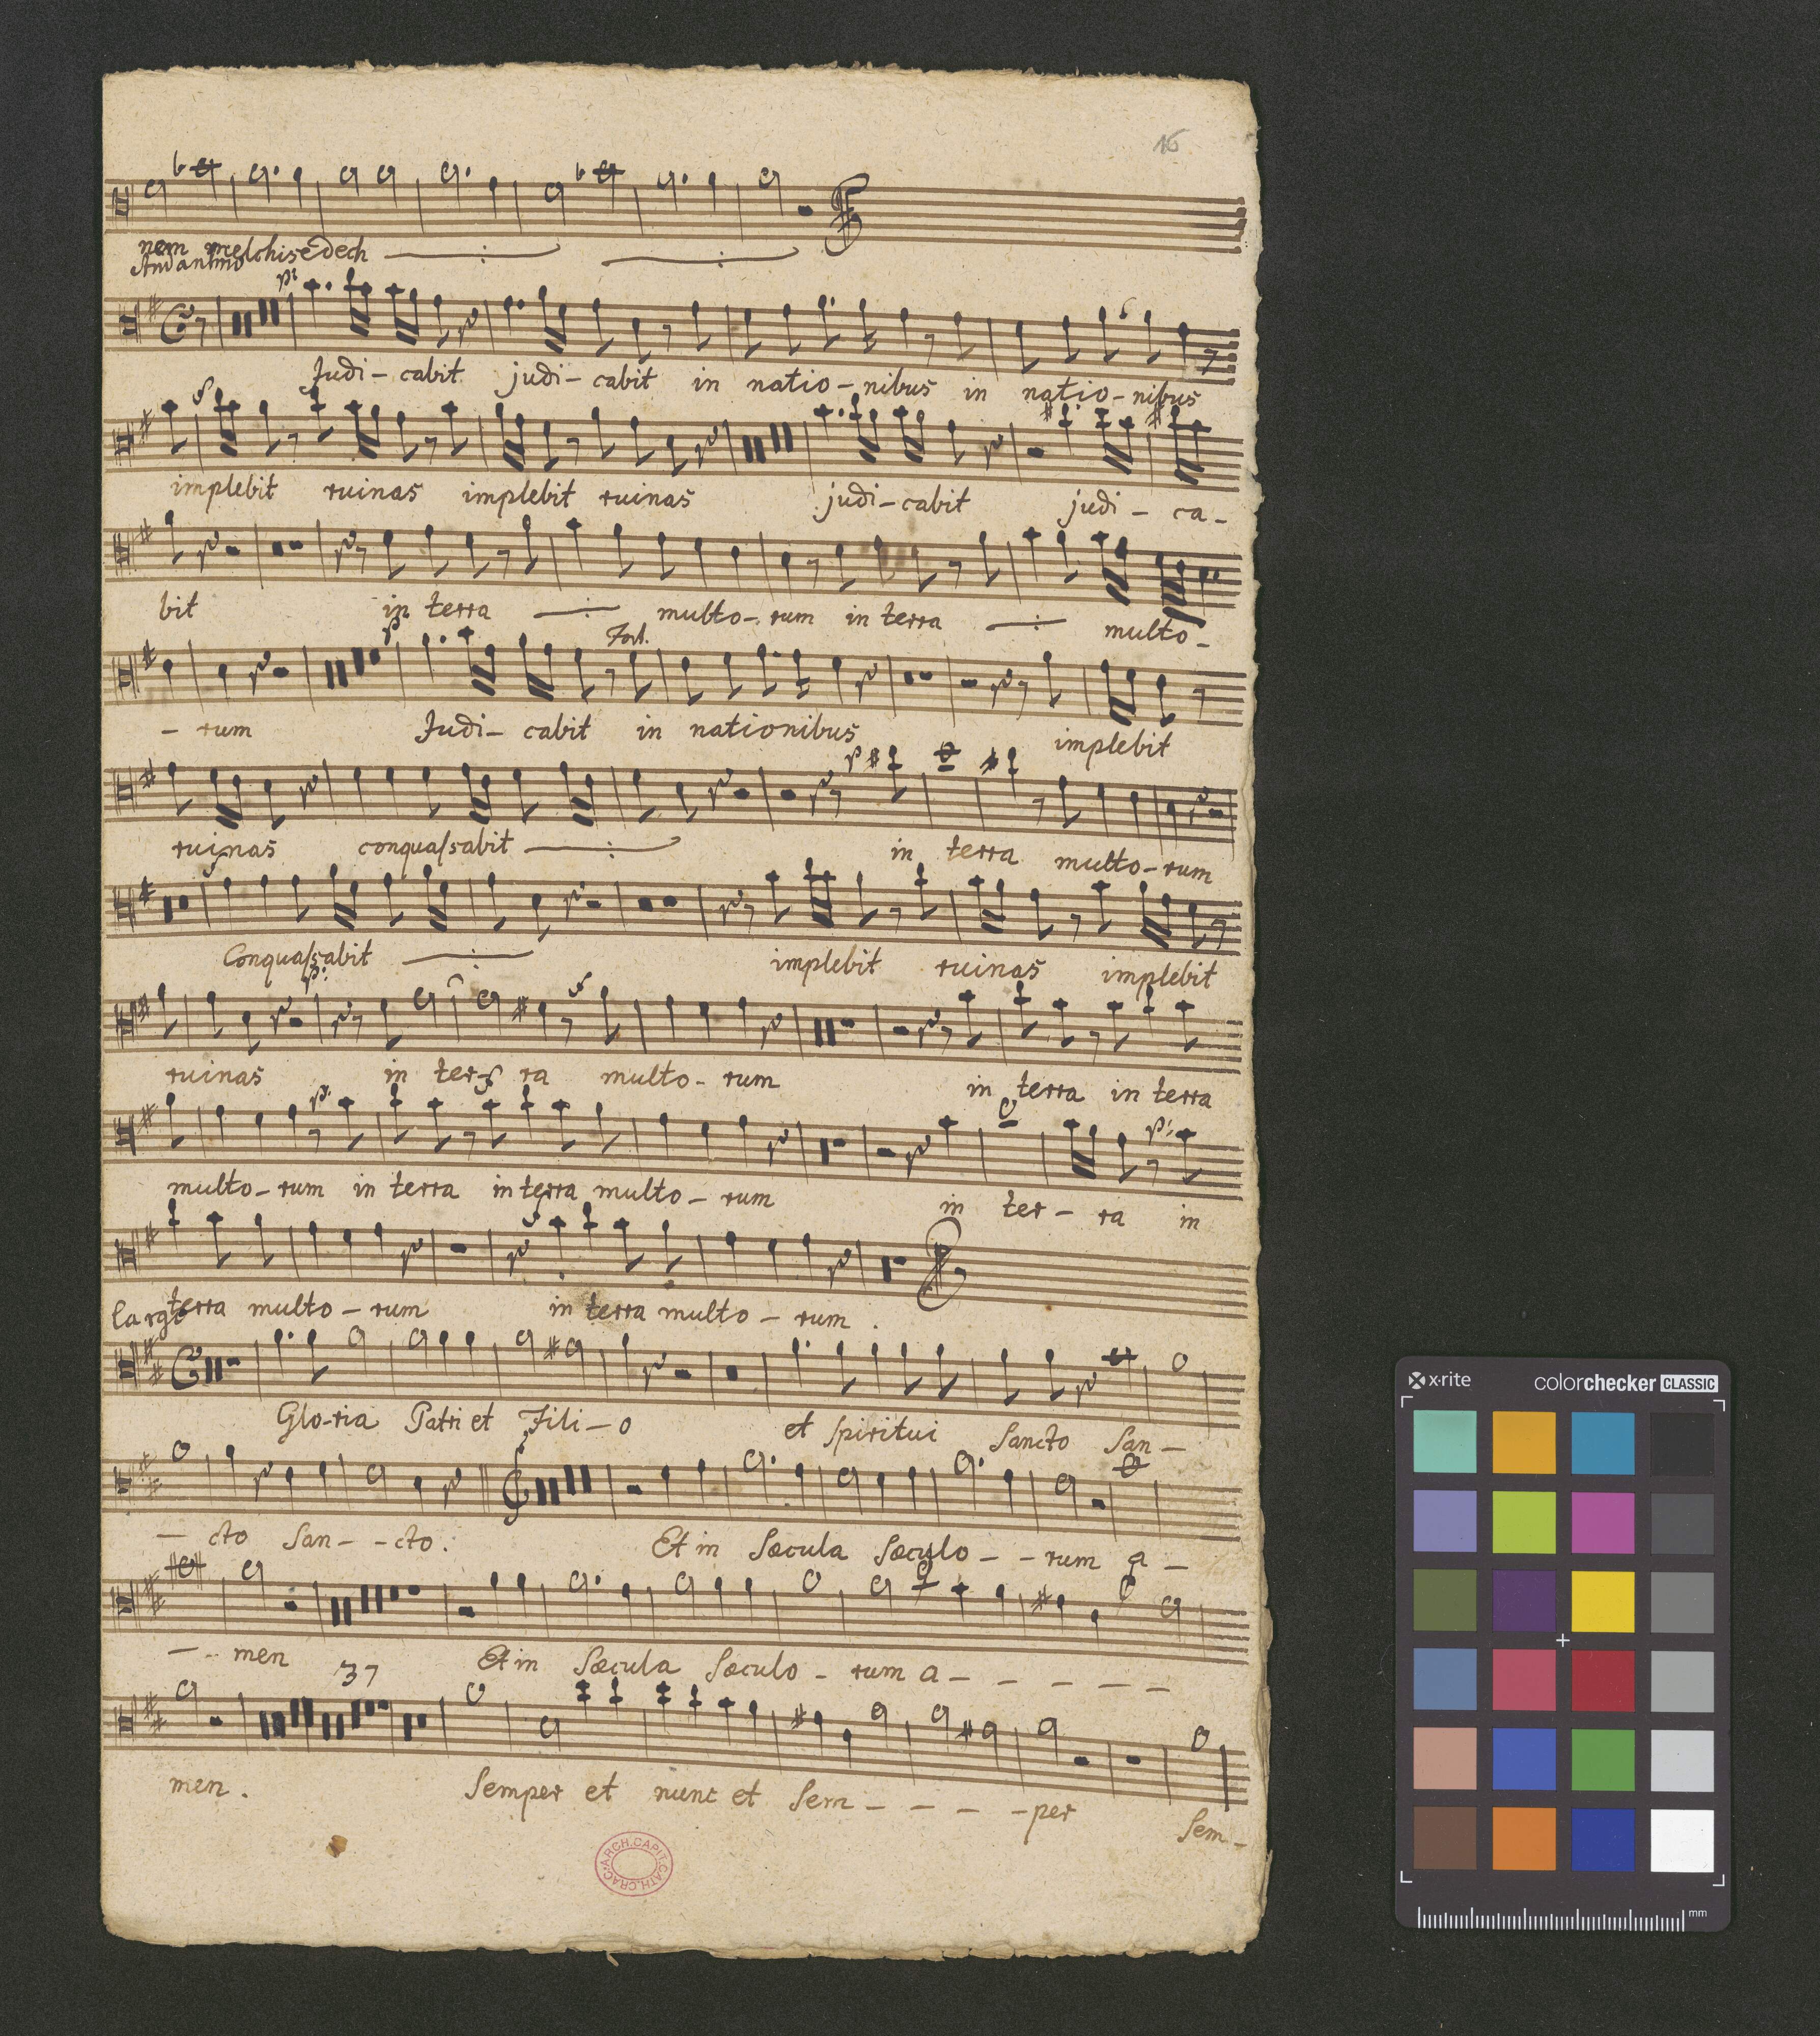 16
nem melchisedech
Andantino
p:
Judi - cabit judi - cabit in natio - nibus in natio - nibus
f
implebit ruinas implebit ruinas judi - cabit judi - ca -
bit in terra multo - rum in terra multo -
p Fort.
- rum Judi - cabit in nationibus implebit
p
ruinas conquaſsabit in terra multo - rum
f
Conquaſsabit implebit ruinas implebit
p: f
ruinas in ter - ra multo - rum in terra in terra
f p: p:
multo - rum in terra in terra multo - rum in ter - ra in
f
terra multo - rum in terra multo - rum .
largo
Glo - ria Patri et Fili - o et ſpiritui Sancto San -
- cto San - - cto . Et in Sæcula Sæculo - - rum a -
- - men Et in Sæcula Sæculo - rum a - - - - -
37
men . Semper et nunc et Sem - - - - per Sem -
ARCH. CAPIT. CATH. CRAC.
x-rite colorchecker CLASSIC
mm